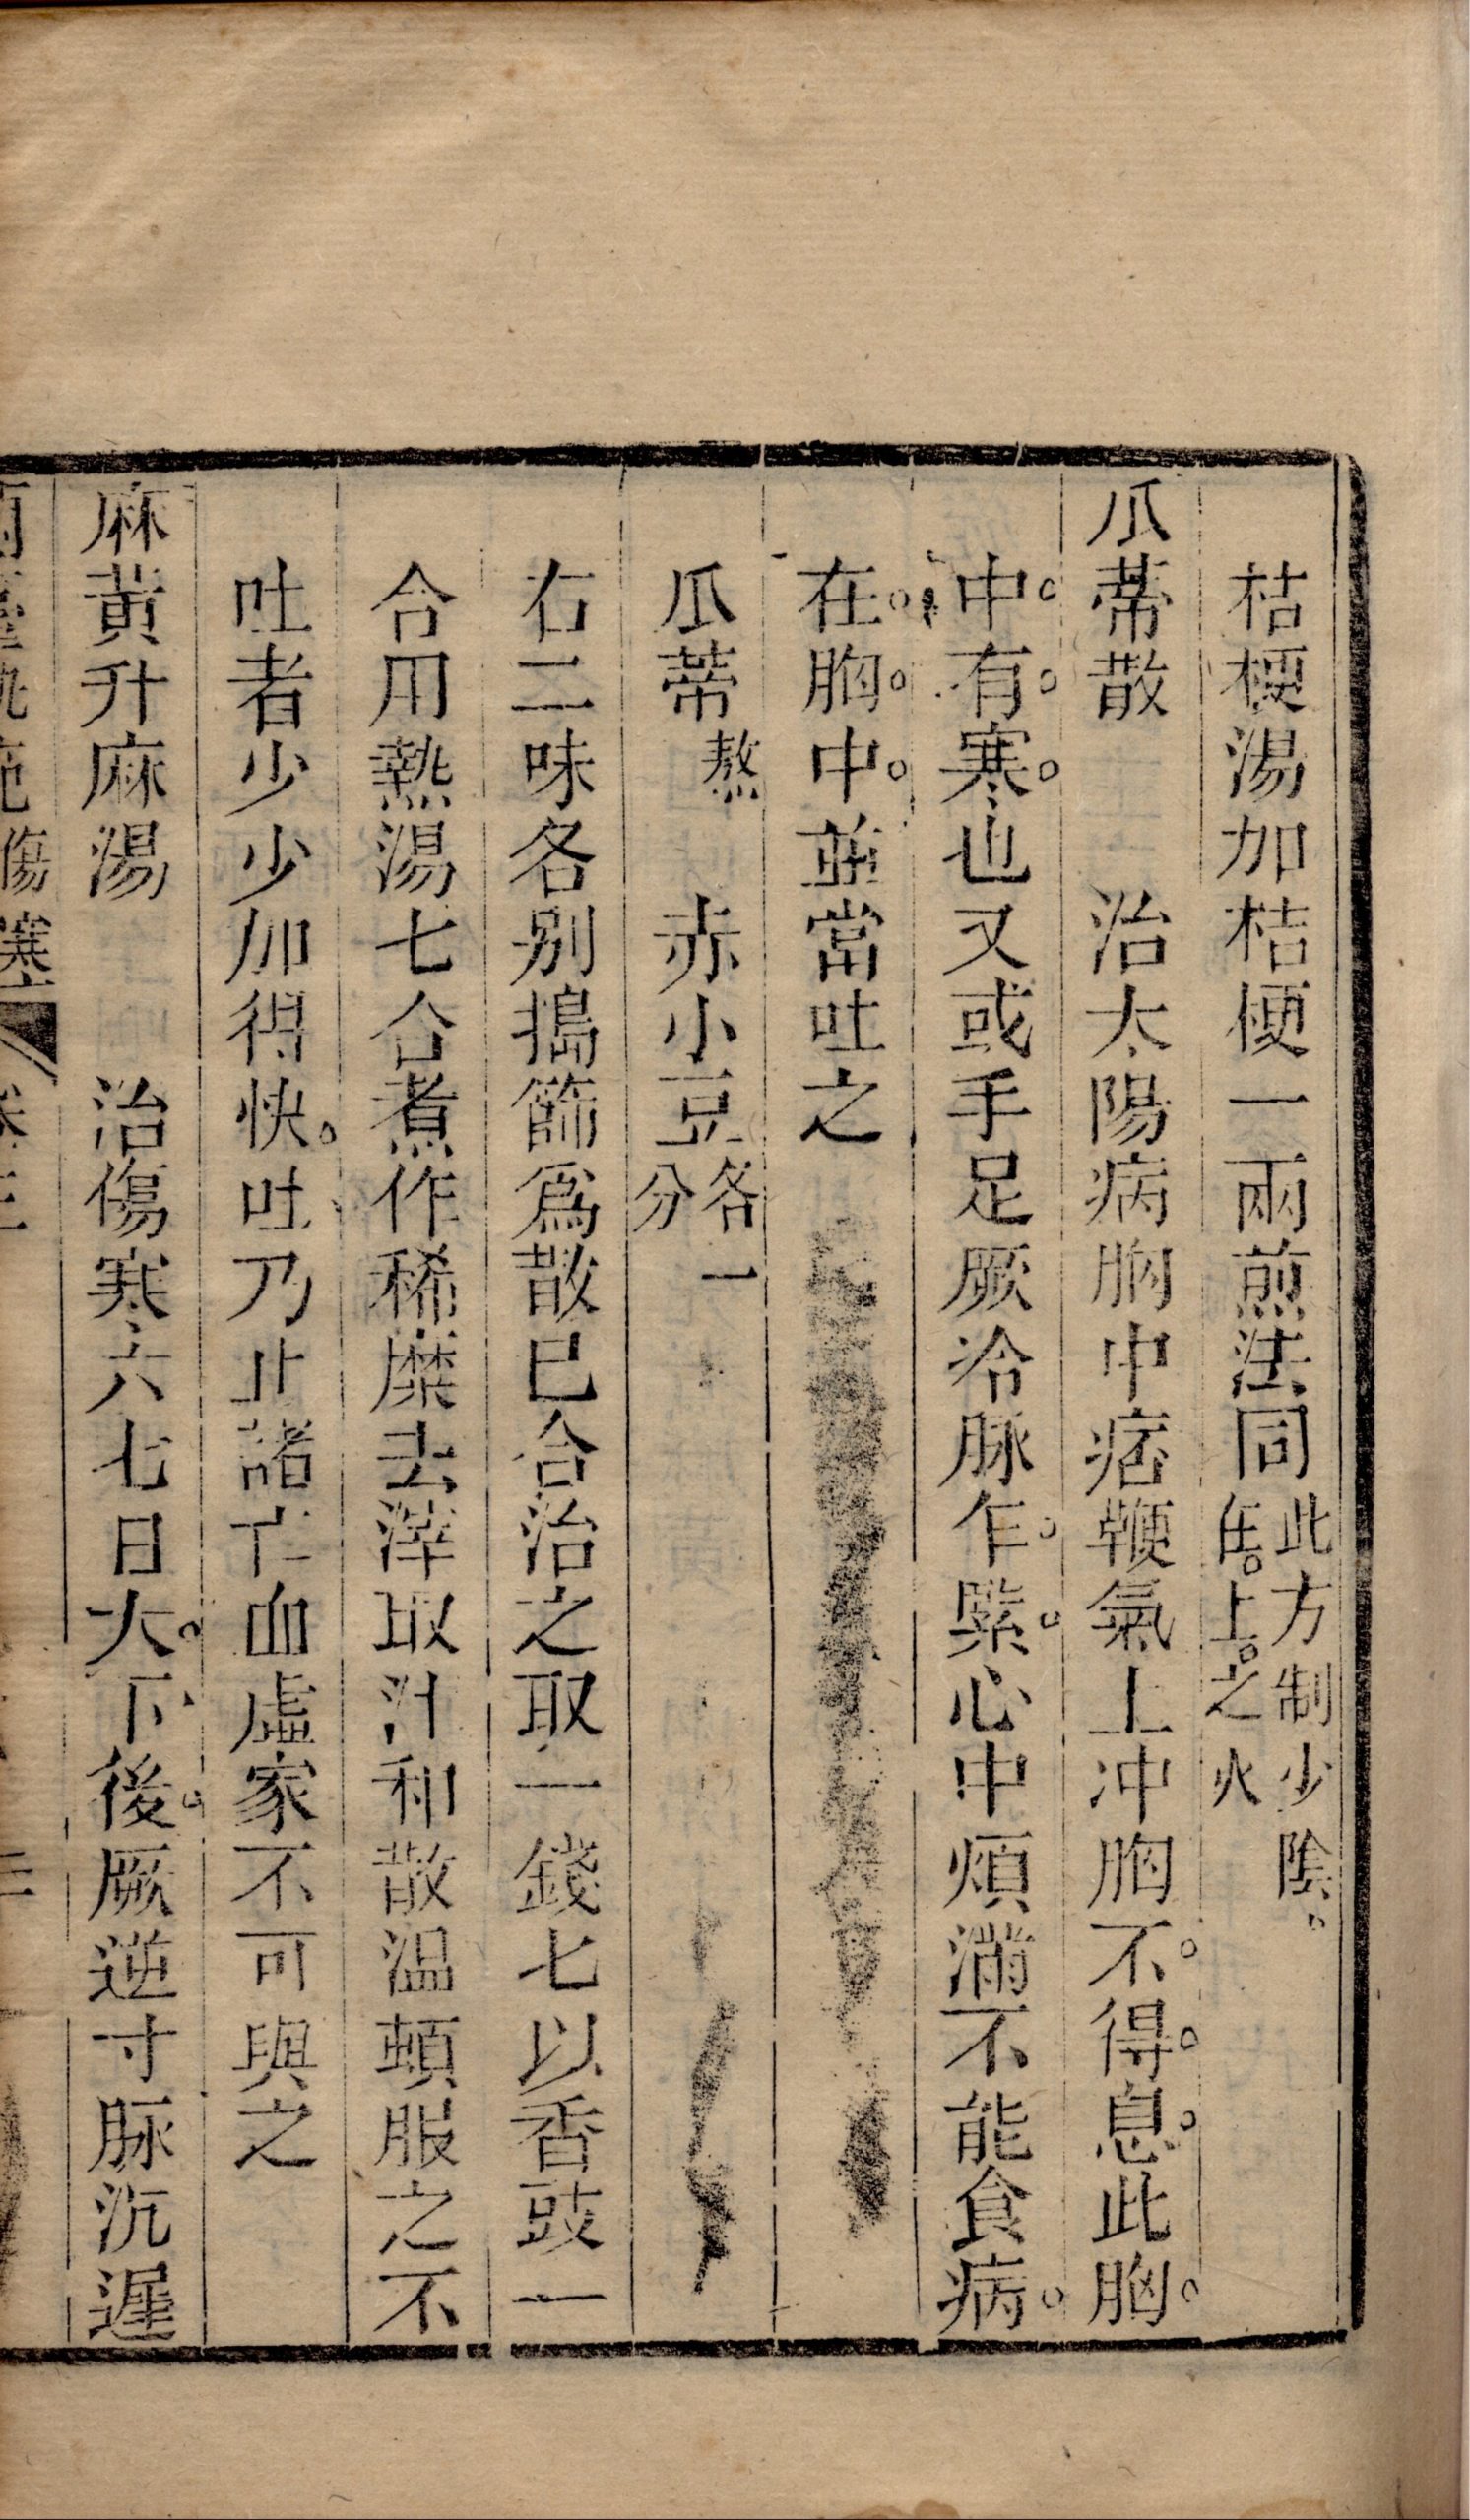 桔梗湯加桔梗一兩煎法同此方制少陰在上之火
瓜蒂散　治太陽病胸中痞鞭氣上冲胸不得息此胸
中有寒也又或手足厥冷脉乍緊心中煩滿不能食病
在胸中並當吐之
瓜蒂熬　赤小豆各一分
右二味各别搗篩爲散已合治之取一錢七以香豉一
合用熱湯七合煮作稀糜去滓取汁和散温頓服之不
吐者少少加得快吐乃止諸亡血虛家不可與之
麻黃升麻湯　治傷寒六七日大下後厥逆寸脉沉遲
傷寒 卷三
三